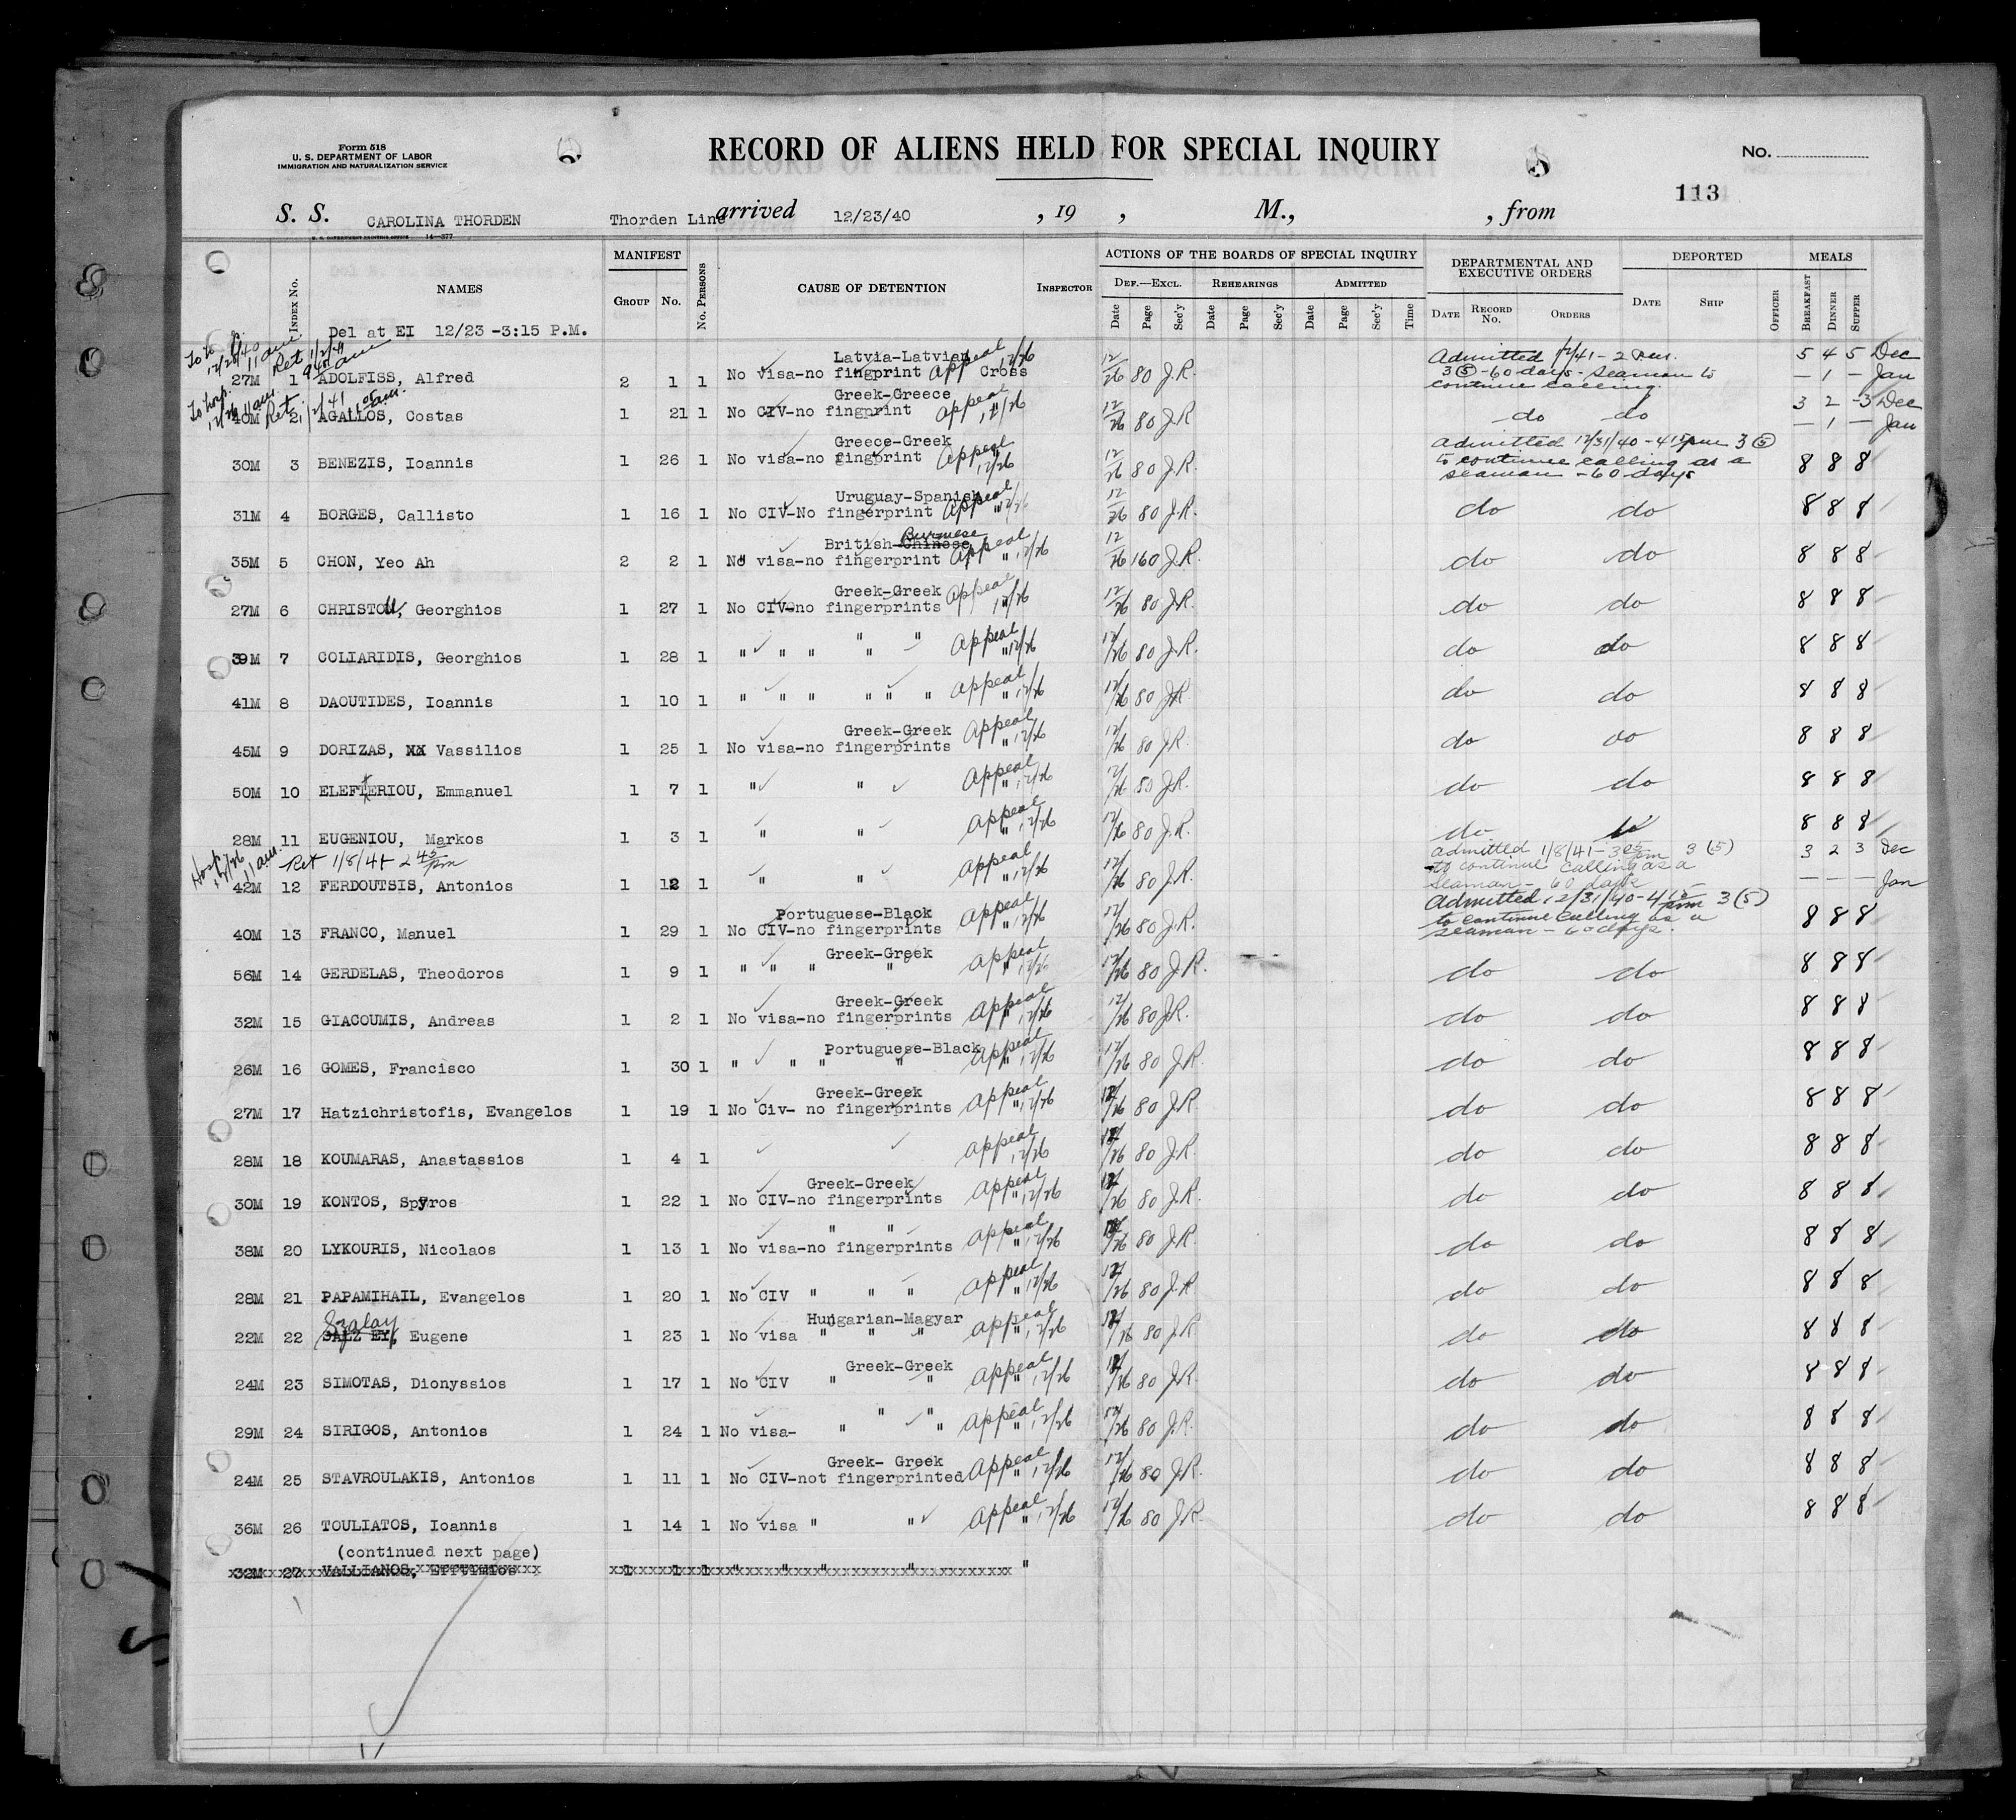 Form 518
U. S. DEPARTMENT OF LABOR
IMMIGRATION AND NATURALIZATION SERVICE
RECORD OF ALIENS HELD FOR SPECIAL INQUIRY
No.
113
S. S. CAROLINA THORDEN Thorden Line arrived 12/23/40, 19 , M., , from
U. S. GOVERNMENT PRINTING OFFICE 14-377
Index No. NAMES MANIFEST Group No. No. Persons CAUSE OF DETENTION Inspector ACTIONS OF THE BOARDS OF SPECIAL INQUIRY Def.—Excl. Date Page Sec'y Rehearings Date Page Sec'y Admitted Date Page Sec'y Time DEPARTMENTAL AND EXECUTIVE ORDERS Date Record No. Orders DEPORTED Date Ship Officer MEALS Breakfast Dinner Supper
Del at EI 12/23 -3:15 P.M.
Latvia-Latvian
27M 1 ADOLFISS, Alfred 2 1 1 No visa-no fingprint Appeal 12/26 Cross 12/26 80 J.R. Admitted 1/2/41 - 2 pm. 3(5)-60 days-seaman to continue calling. 5 4 5 Dec
— 1 — Jan
Greek-Greece
40M 2 AGALLOS, Costas 1 21 1 No CIV-no fingprint Appeal 12/26 12/26 80 J.R. do do 3 2 3 Dec
— 1 — Jan
Greece-Greek
30M 3 BENEZIS, Ioannis 1 26 1 No visa-no fingprint Appeal 12/26 12/26 80 J.R. Admitted 12/31/40-415pm 3(5) to continue calling as a seaman -60 days 8 8 8
Uruguay-Spanish
31M 4 BORGES, Callisto 1 16 1 No CIV-No fingerprint Appeal 12/26 12/26 80 J.R. do do 8 8 8
British-Chinese Burmese
35M 5 CHON, Yeo Ah 2 2 1 No visa-no fingerprint Appeal " 12/26 12/26 160 J.R. do do 8 8 8
Greek-Greek
27M 6 CHRISTOU, Georghios 1 27 1 No CIV-no fingerprints Appeal 12/26 12/26 80 J.R. do do 8 8 8
" "
39M 7 COLIARIDIS, Georghios 1 28 1 " " " " Appeal " 12/26 12/26 80 J.R. do do 8 8 8
41M 8 DAOUTIDES, Ioannis 1 10 1 " " " " " " Appeal " 12/26 12/26 80 J.R. do do 8 8 8
Greek-Greek
45M 9 DORIZAS, XX Vassilios 1 25 1 No visa-no fingerprints Appeal " 12/26 12/26 80 J.R. do do 8 8 8
50M 10 ELEFTERIOU, Emmanuel 1 7 1 " " Appeal " 12/26 12/26 80 J.R. do do 8 8 8
28M 11 EUGENIOU, Markos 1 3 1 " " Appeal " 12/26 12/26 80 J.R. do do 8 8 8
Hosp 12/26 11 am. Ret 1/8/41 2 45 pm
42M 12 FERDOUTSIS, Antonios 1 12 1 " " Appeal " 12/26 12/26 80 J.R. Admitted 1/8/41-3 05 pm 3(5) to continue calling as a seaman - 60 days 3 2 3 Dec
— — — Jan
Portuguese-Black
40M 13 FRANCO, Manuel 1 29 1 No CIV-no fingerprints Appeal " 12/26 12/26 80 J.R. Admitted 12/31/40-4 15 pm 3(5) to continue calling as a seaman - 60 days. 8 8 8
Greek-Greek
56M 14 GERDELAS, Theodoros 1 9 1 " " " " Appeal " 12/26 12/26 80 J.R. do do 8 8 8
Greek-Greek
32M 15 GIACOUMIS, Andreas 1 2 1 No visa-no fingerprints Appeal " 12/26 12/26 80 J.R. do do 8 8 8
Portuguese-Black
26M 16 GOMES, Francisco 1 30 1 " " " " Appeal " 12/26 12/26 80 J.R. do do 8 8 8
Greek-Greek
27M 17 Hatzichristofis, Evangelos 1 19 1 No Civ- no fingerprints Appeal " 12/26 12/26 80 J.R. do do 8 8 8
28M 18 KOUMARAS, Anastassios 1 4 1 Appeal 12/26 12/26 80 J.R. do do 8 8 8
Greek-Greek
30M 19 KONTOS, Spyros 1 22 1 No CIV-no fingerprints Appeal " 12/26 12/26 80 J.R. do do 8 8 8
" "
38M 20 LYKOURIS, Nicolaos 1 13 1 No visa-no fingerprints Appeal " 12/26 12/26 80 J.R. do do 8 8 8
28M 21 PAPAMIHAIL, Evangelos 1 20 1 No CIV " " " Appeal " 12/26 12/26 80 J.R. do do 8 8 8
Szalay Hungarian-Magyar
22M 22 SALZ EY, Eugene 1 23 1 No visa " " " Appeal " 12/26 12/26 80 J.R. do do 8 8 8
Greek-Greek
24M 23 SIMOTAS, Dionyssios 1 17 1 No CIV " " Appeal " 12/26 12/26 80 J.R. do do 8 8 8
" "
29M 24 SIRIGOS, Antonios 1 24 1 No visa- " " Appeal " 12/26 12/26 80 J.R. do do 8 8 8
Greek- Greek
24M 25 STAVROULAKIS, Antonios 1 11 1 No CIV-not fingerprinted Appeal " 12/26 12/26 80 J.R. do do 8 8 8
36M 26 TOULIATOS, Ioannis 1 14 1 No visa " " Appeal " 12/26 12/26 80 J.R. do do 8 8 8
(continued next page)
32M 27 VALLIANOS, Efftimios 1 1 1 " " " " "